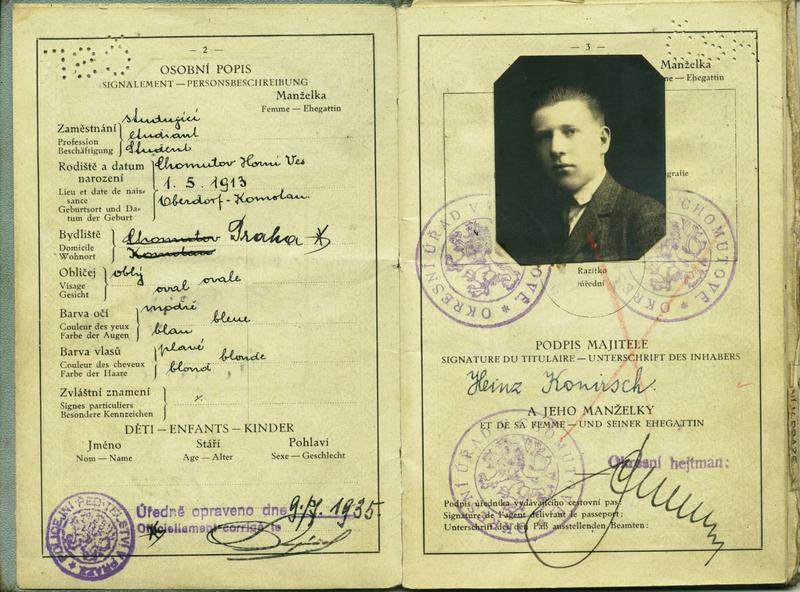 — 2 —
OSOBNÍ POPIS
SIGNALEMENT — PERSONSBESCHREIBUNG
Manželka
Femme — Ehegattin
Zaměstnání
Profession
Beschäftigung
studující
étudiant
Student
Rodiště a datum
narození
Lieu et date de nais-
sance
Geburtsort und Da-
tum der Geburt
Chomutov Horní Ves
1. 5. 1913
Oberdorf-Komotau
Bydliště
Domicile
Wohnort
Chomutov Praha
Komotau
Obličej
Visage
Gesicht
oblý
oval ovale
Barva očí
Couleur des yeux
Farbe der Augen
modré
blau bleue
Barva vlasů
Couleur des cheveux
Farbe der Haare
plavé
blond blonde
Zvláštní znamení
Signes particuliers
Besondere Kennzeichen
DĚTI — ENFANTS — KINDER
Jméno Stáří Pohlaví
Nom — Name Age — Alter Sexe — Geschlecht
Úředně opraveno dne 9./I. 1935.
Officiellement corrigé le
POLICEJNÍ ŘEDITELSTVÍ V PRAZE
— 3 —
Manželka
Femme — Ehegattin
grafie
OKRESNÍ ÚŘAD V
CHOMUTOVĚ * OKRES
Razítko
úřední
PODPIS MAJITELE
SIGNATURE DU TITULAIRE — UNTERSCHRIFT DES INHABERS
Heinz Konirsch.
A JEHO MANŽELKY
ET DE SA FEMME — UND SEINER EHEGATTIN
Okresní hejtman:
Podpis úředníka vydávajícího cestovní pas
Signature de l'agent délivrant le passeport:
Unterschrift des den Paß ausstellenden Beamten: